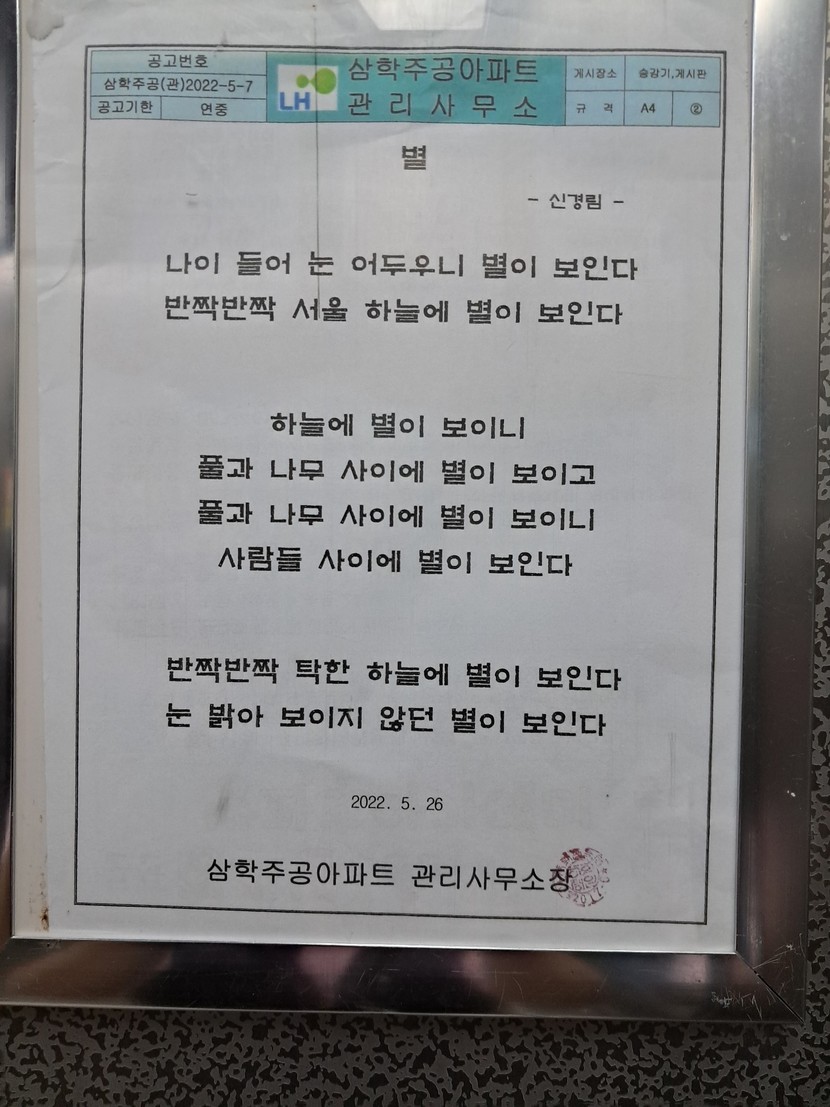 공고번호
삼학주공(관)2022-5-7
공고기한 연중
LH
삼학주공아파트
관리사무소
게시장소 승강기,게시판
규 격 A4 ②
별
- 신경림 -
나이 들어 눈 어두우니 별이 보인다
반짝반짝 서울 하늘에 별이 보인다
하늘에 별이 보이니
풀과 나무 사이에 별이 보이고
풀과 나무 사이에 별이 보이니
사람들 사이에 별이 보인다
반짝반짝 탁한 하늘에 별이 보인다
눈 밝아 보이지 않던 별이 보인다
2022. 5. 26
삼학주공아파트 관리사무소장